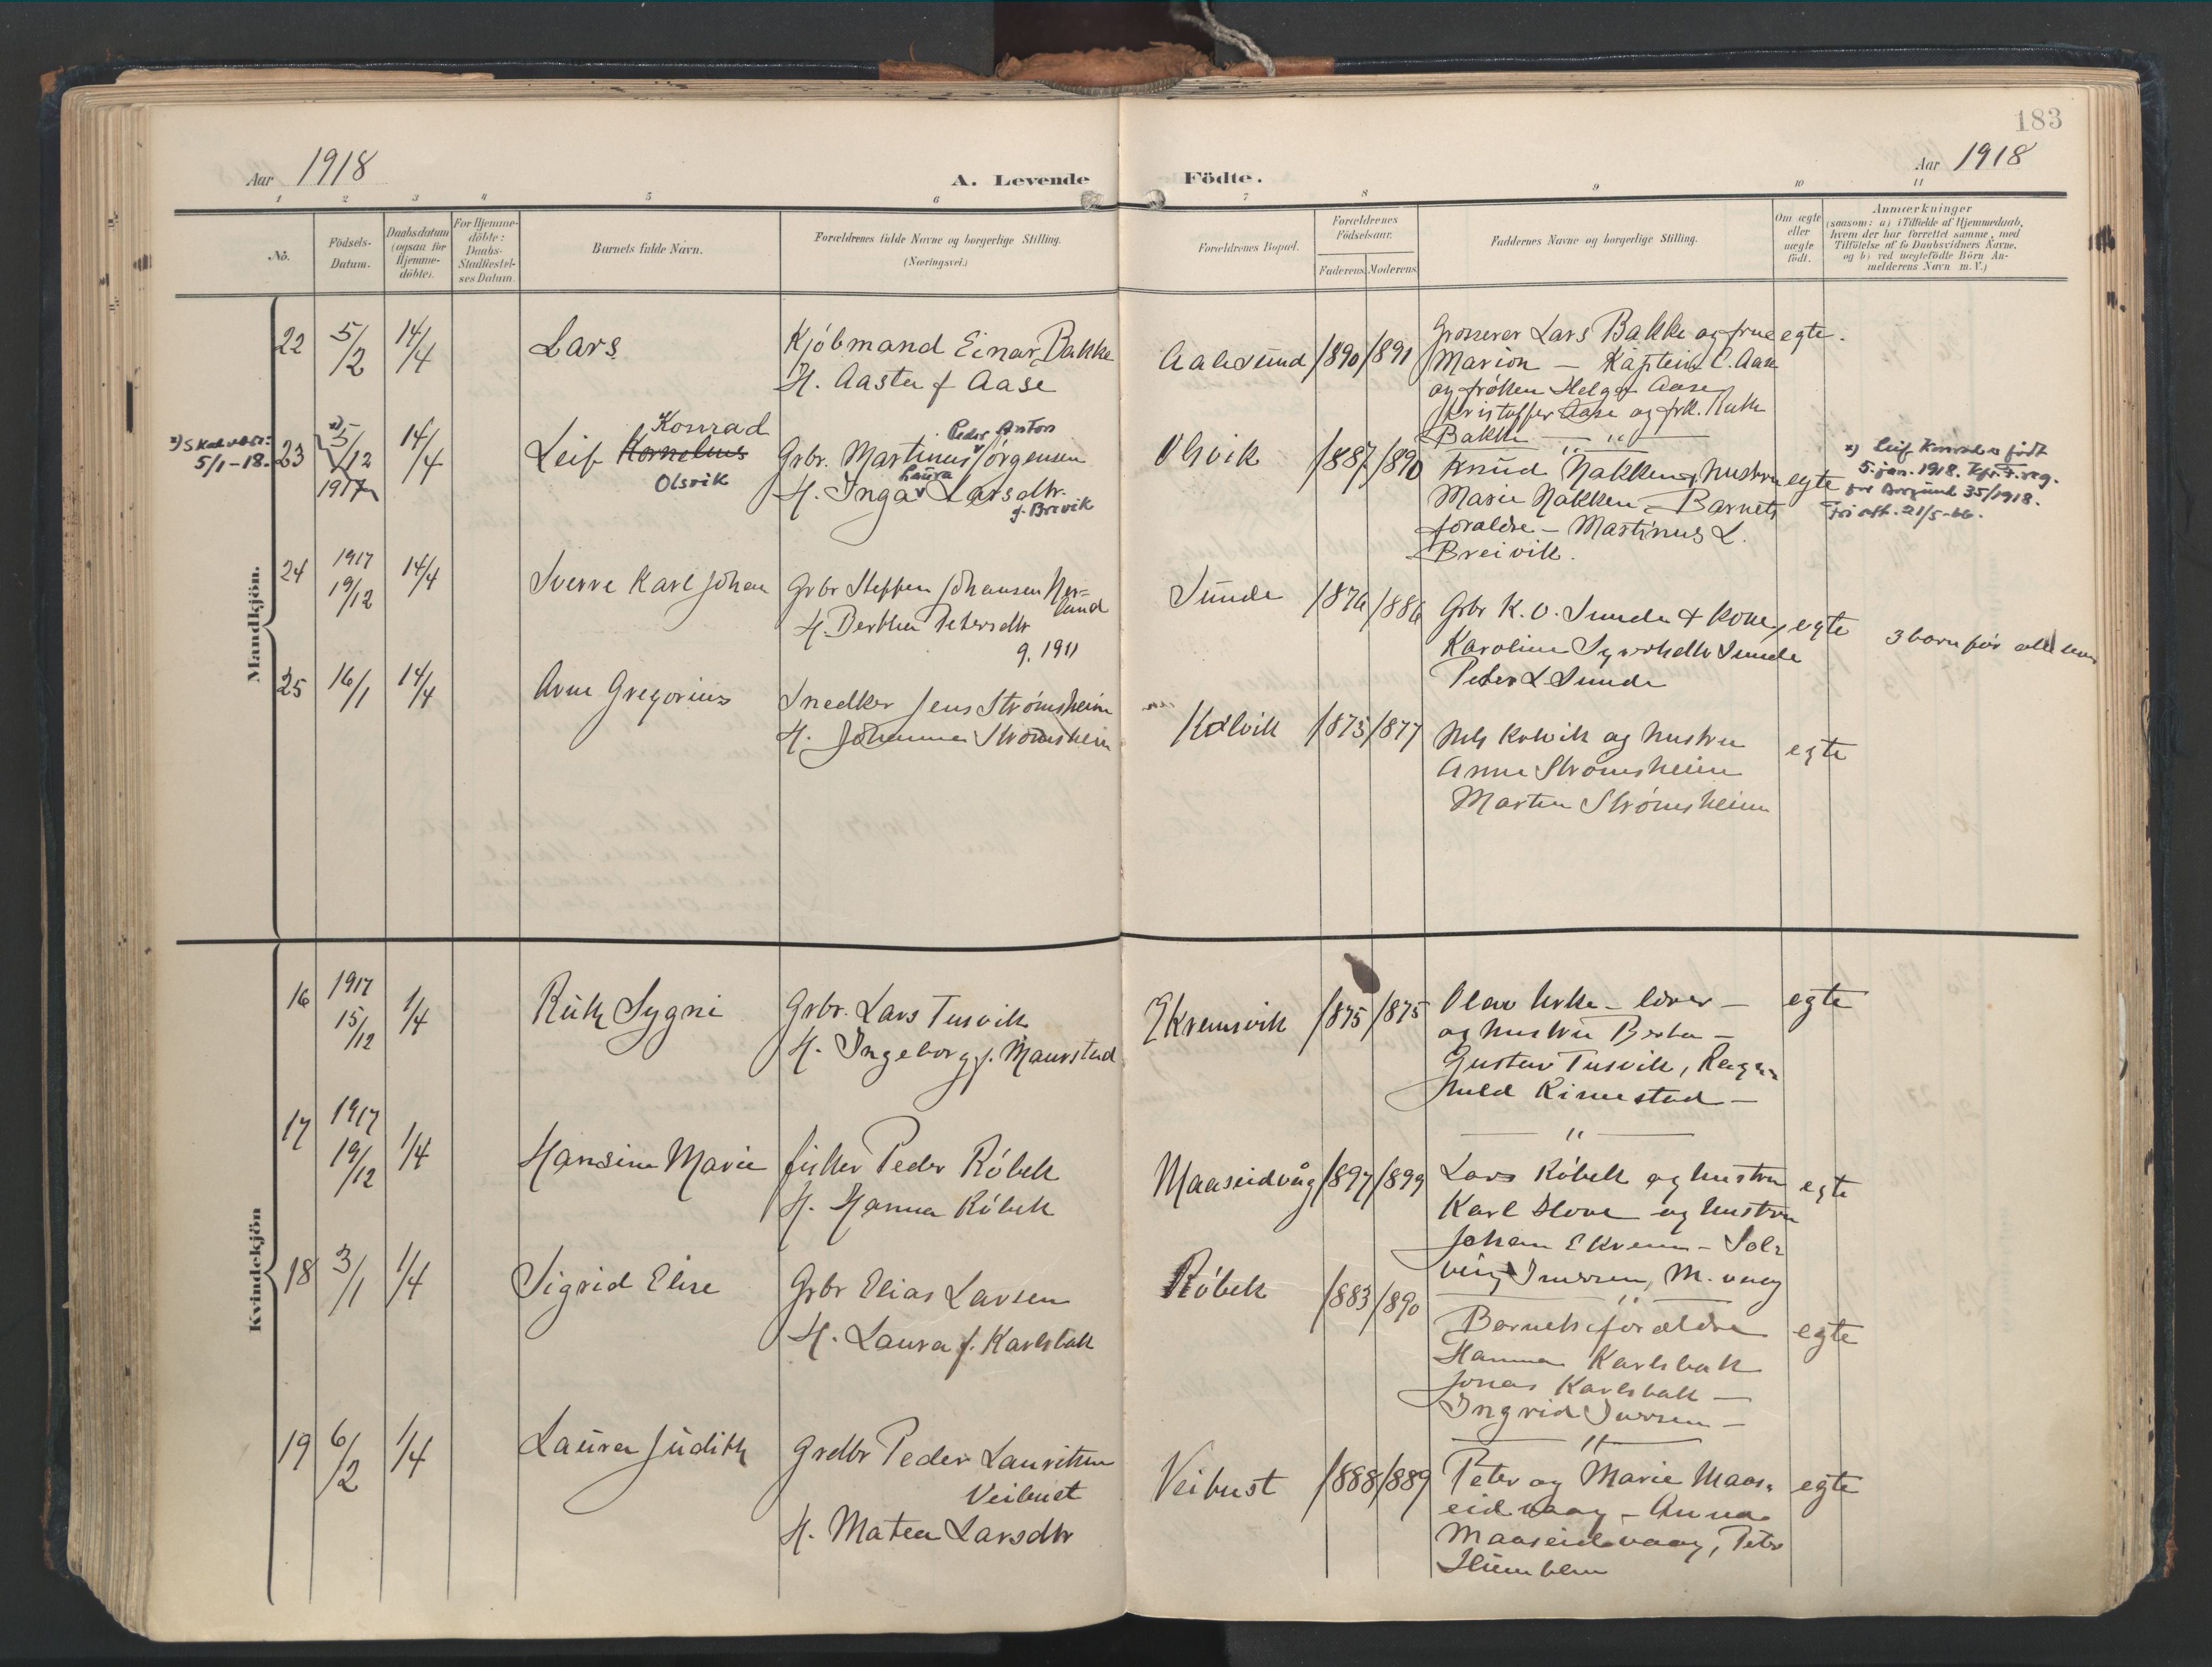 183
Aar 1918
A. Levende Födte.
Aar 1918
1 2 3 4 5 6 7 8 9 10 11
No.
Födsels-Datum.
Daabsdatum (ogsaa for Hjemme-döbte).
For Hjemme-döbte: Daabs-Stadfæstel-ses Datum.
Barnets fulde Navn.
Forældrenes fulde Navne og borgerlige Stilling.
(Næringsvei.)
Forældrenes Bopæl.
Forældrenes Födselsaar.
Faderens. Moderens.
Faddernes Navne og borgerlige Stilling.
Om ægte eller uægte födt.
Anmærkninger
(saasom: a) i Tilfælde af Hjemmedaab, hvem der har forrettet samme, med Tilföielse af to Daabsvidners Navne, og b) ved uægtefödte Börn An-melderens Navn m. V.)
Mandkjön.
22 5/2 14/4 Lars
Kjöbmand Einar Bakke
H. Aasta f Aase
Aalesund 1890 1891
Grosserer Lars Bakke og frue
Marion — Kaptein C. Aase
og fröken Helga Aase
Kristoffer Aase og frk. Ruth
Bakke — " —
egte.
x) Skal være: 5/1-18.
23 x) 5/12 1917 14/4
Leif Kornelius Konrad
Olsvik
Grbr. Martinus Peder Anton Jörgensen
H. Inga Laura Larsdtr.
f. Brevik
Olsvik 1887 1890
Knud Nakken & hustru
Marie Nakken — Barnets
foraldre — Martinus L.
Breivik.
egte
x) Leif Konrad er födt
5. jan. 1918. Kfr. F.reg.
for Borgund 35/1918.
21/5-66.
24 1917 19/12 14/4
Sverre Karl Johan
Grbr Steffen Johansen Nor=
land
H. Berthe Petersdtr
g. 1911
Sunde 1876 1886
Grbr K. O. Sunde & kone,
Karoline Syvertsdtr Sunde
Peder L Sunde
egte
3 barn för
25 16/1 14/4
Arne Gregorius
Snedker Jens Strömsheim
H. Johanna Strömsheim
Kolvik 1873 1877
Nils Kolvik og hustru
Anna Strömsheim
Martin Strömsheim
egte
Kvindekjön
16 1917 15/12 1/4
Ruth Sygni
Grbr. Lars Tusvik
H. Ingeborg f. Maurstad
Ekremsvik 1875 1875
Olav Urke — lærer —
og hustru Berta —
Gustav Tusvik, Ragn-
hild Rimestad —
— " —
egte
17 1917 19/12 1/4
Hansine Marie
fisker Peder Röbek
H. Hanna Röbek
Maaseidvåg 1897 1899
Lars Röbek og hustru
Karl Hove og hustru
Johan Ekrem — Sol-
veig Iversen, M. vaag
— " —
egte
18 3/1 1/4
Sigrid Elise
Grbr Elias Larsen
H. Laura f. Karlsbak
Röbek 1883 1890
Barnets foraldre
Hanna Karlsbak
Jonas Karlsbak —
Ingrid Iversen —
— " —
egte
19 6/2 1/4
Laura Judith
Grdbr Peder Lauritsen
Veibust
H. Matea Larsdtr
Veibust 1888 1889
Peter og Marie Maas-
eidvaag — Anna
Maaseidvaag, Peter
Humblen
egte